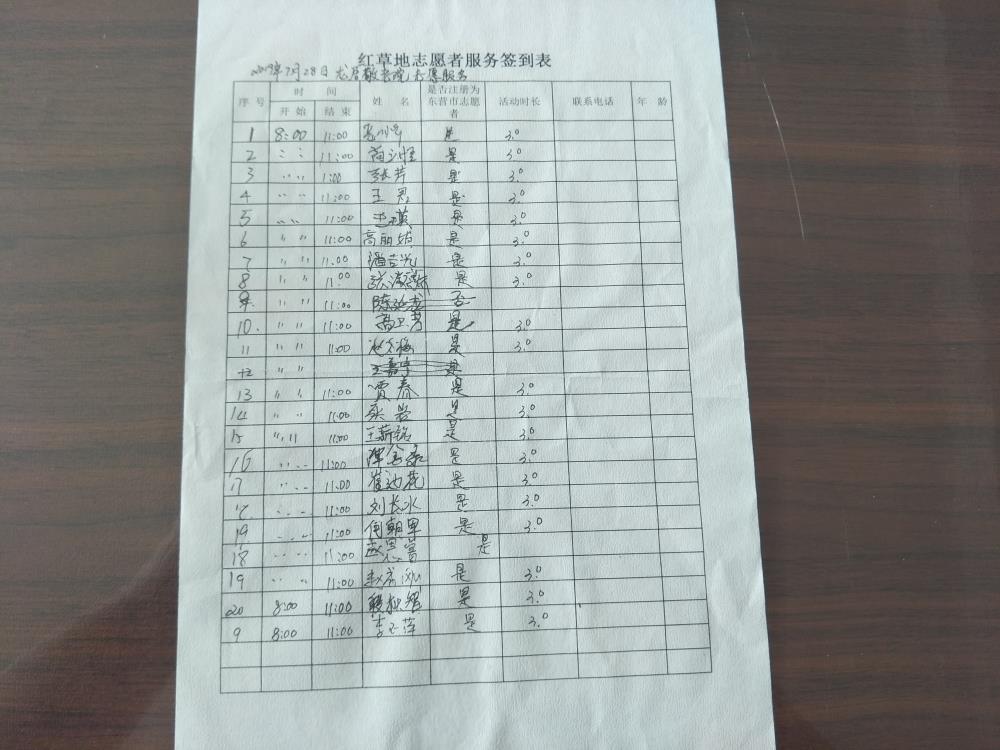 红草地志愿者服务签到表
2019年7月28日 龙居敬老院志愿服务
序号 时间 姓名 是否注册为东营市志愿者 活动时长 联系电话 年龄
开始 结束
1 8:00 11:00 是 3.0
2 〃 〃 11:00 是 3.0
3 〃 〃 1:00 张芹 是 3.0
4 〃 〃 11:00 王君 是 3.0
5 〃 〃 11:00 王琪 是 3.0
6 〃 〃 11:00 高丽娟 是 3.0
7 〃 〃 11:00 潘吉光 是 3.0
8 〃 〃 11:00 是 3.0
9 〃 〃 11:00 否
10. 〃 〃 11:00 高卫芳 是 3.0
11 〃 〃 11:00 是 3.0
12 〃 〃 王嘉宇 是
13 〃 〃 11:00 贾春 是 3.0
14 〃 〃 11:00 是 3.0
15 〃 〃 11:00 王薪铭 是 3.0
16 〃 〃 11:00 是 3.0
17 〃 〃 11:00 崔池花 是 3.0
18 〃 〃 11:00 刘长水 是 3.0
19 〃 〃 11:00 何朝军 是 3.0
18 〃 〃 11:00 是
19 〃 〃 11:00 是 3.0
20 8:00 11:00 是 3.0
9 8:00 11:00 李玉萍 是 3.0